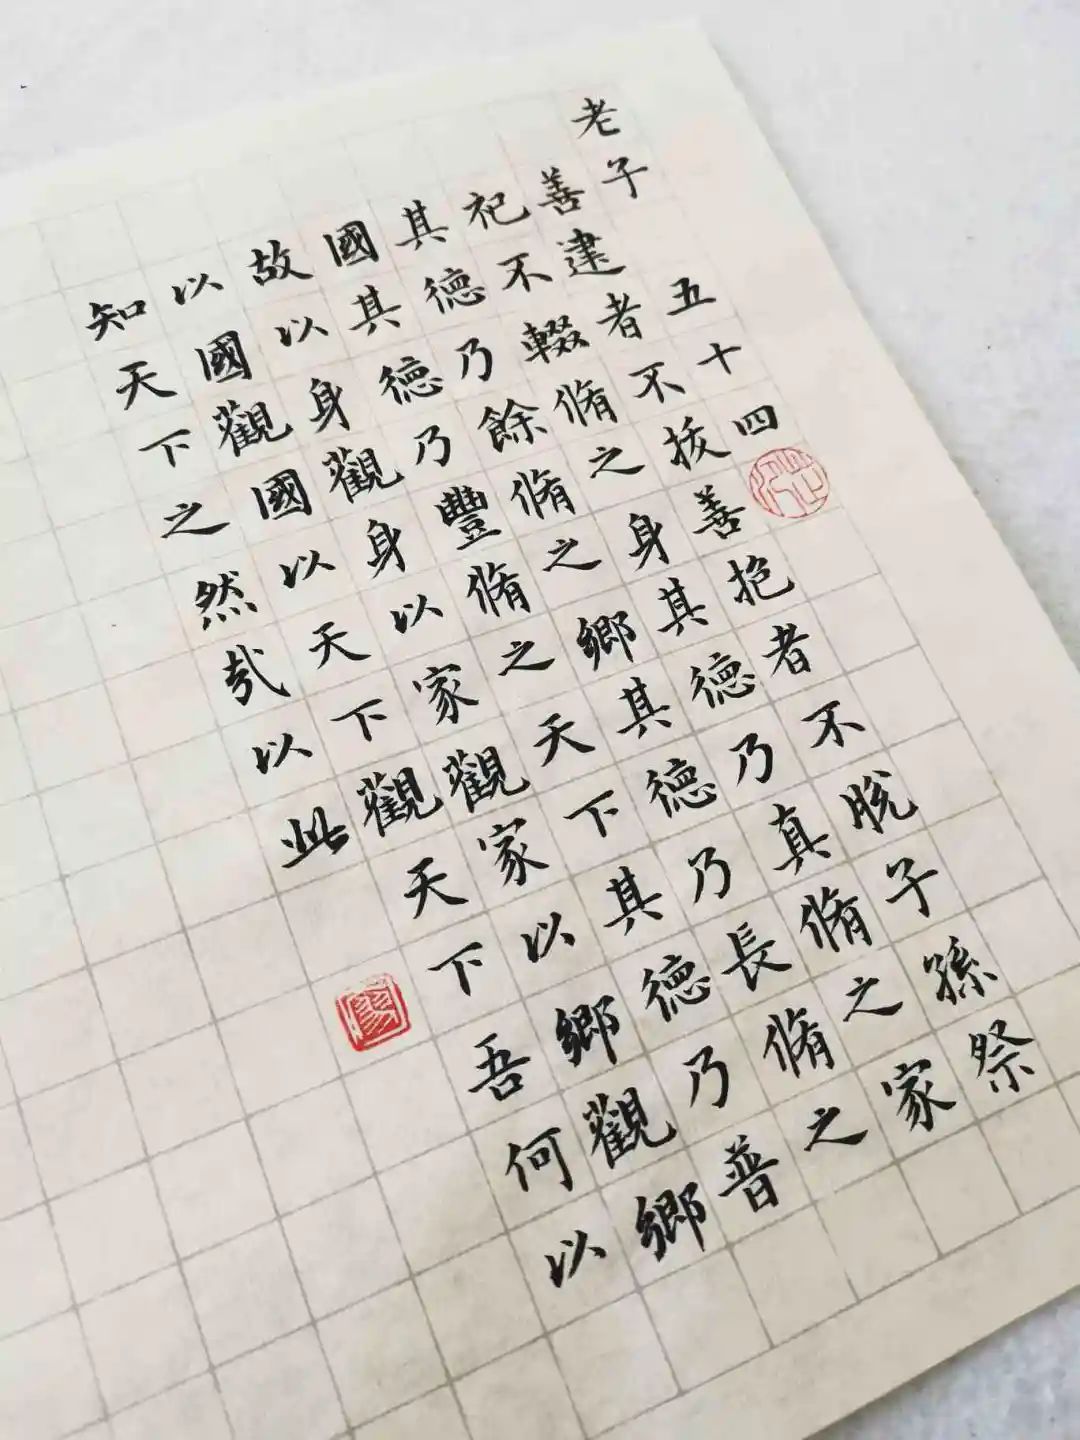 老子 五十四
善建者不拔善抱者不脫子孫祭
祀不輟脩之身其德乃真脩之家
其德乃餘脩之鄉其德乃長脩之
國其德乃豐脩之天下其德乃普
故以身觀身以家觀家以鄉觀鄉
以國觀國以天下觀天下吾何以
知天下之然哉以此